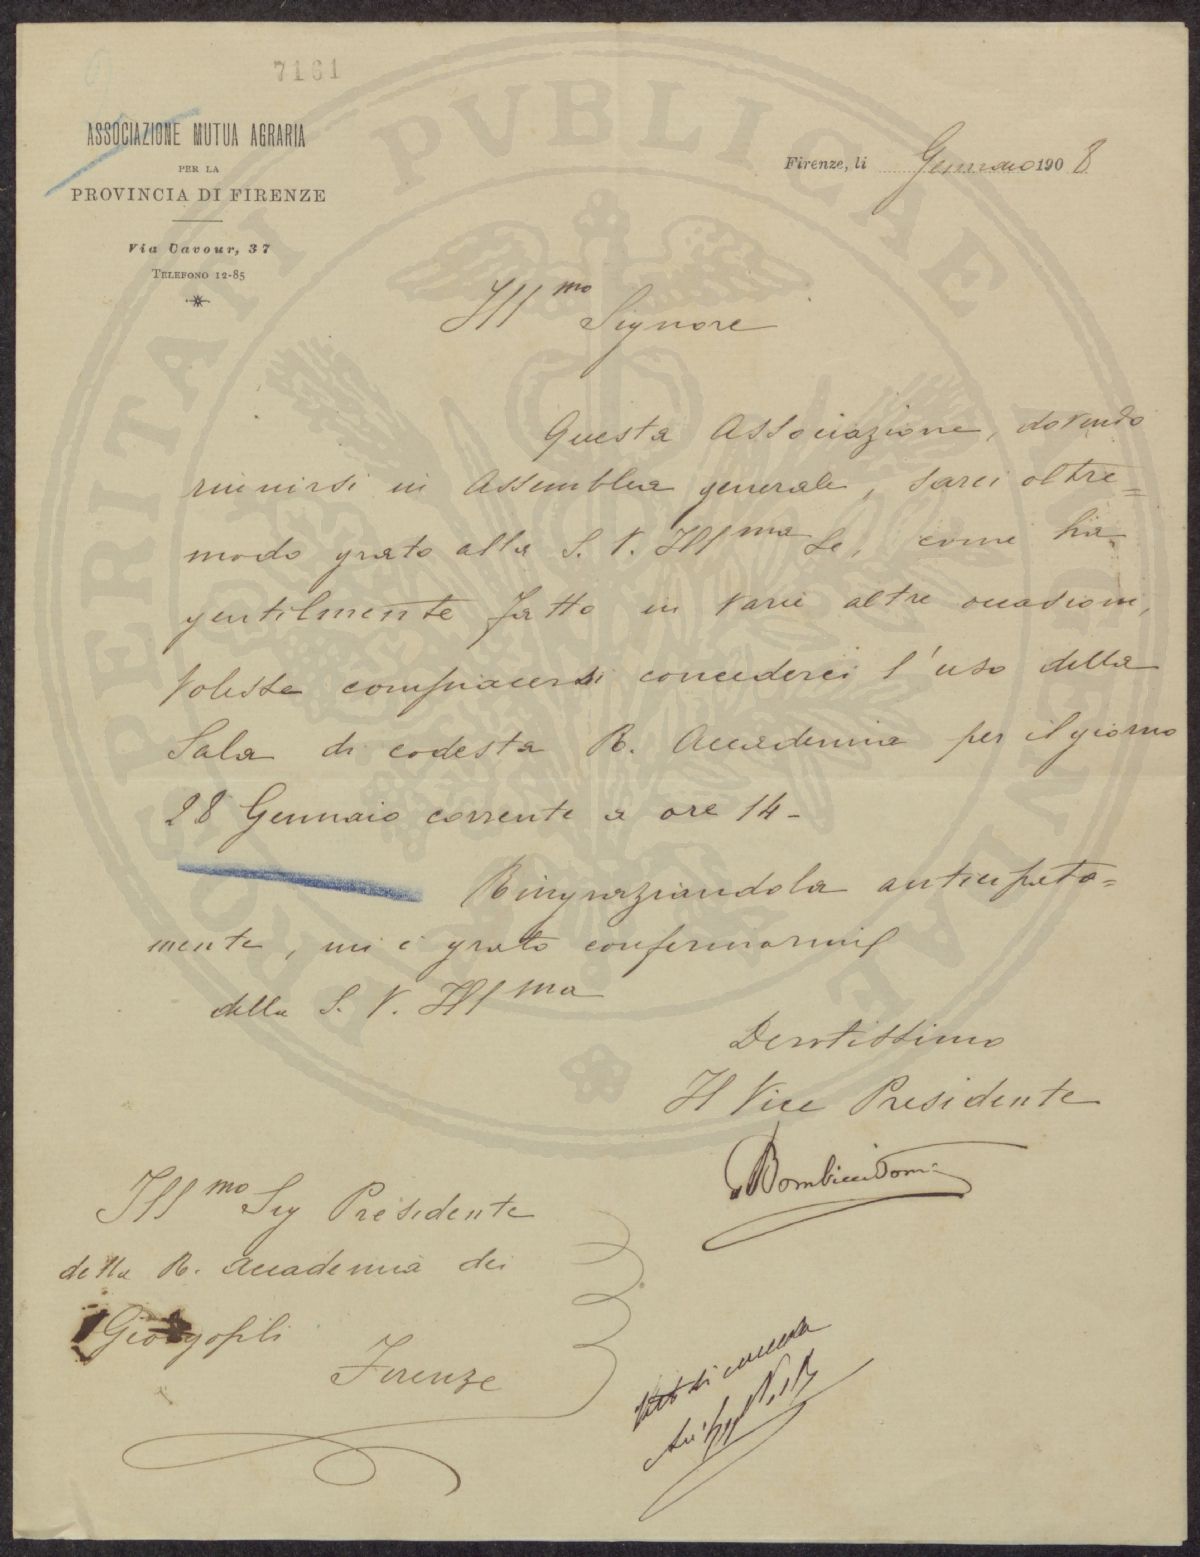 7161
ASSOCIAZIONE MUTUA AGRARIA
PER LA
PROVINCIA DI FIRENZE
Via Cavour, 37
TELEFONO 12-85
Firenze, li Gennaio 1908
Ill.mo Signore
Questa Associazione, dovendo
riunirsi in Assemblea generale, sarei oltre=
modo grato alla S. V. Ill.ma se, come ha
gentilmente fatto in varie altre occasioni,
volesse compiacersi concederci l'uso della
Sala di codesta R. Accademia per il giorno
28 Gennaio corrente a ore 14-
Ringraziandola anticipata=
mente, mi è grato confermarmi
della S. V. Ill.ma
Devotissimo
Il Vice Presidente
Bombicci Pomi
Ill.mo Sig Presidente
della R. Accademia dei
Georgofili
Firenze
di
PROSPERITATI PUBLICAE AUGENDAE